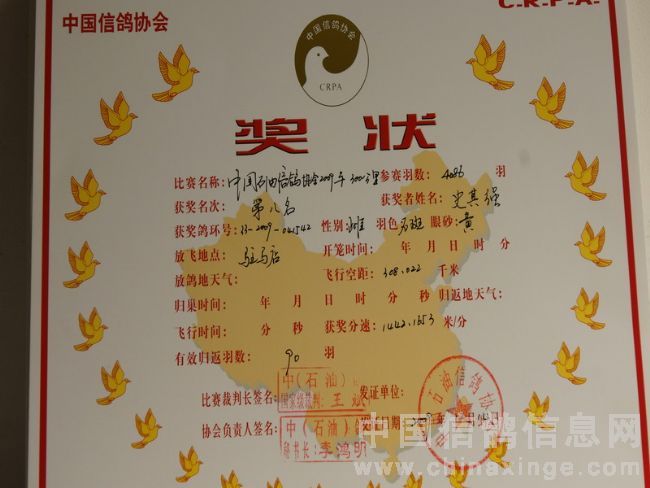 C.R.P.A.
中国信鸽协会
中国信鸽协会
CRPA
奖 状
比赛名称：中国石油信鸽协会2009年300公里 参赛羽数：4086 羽
获奖名次：第八名 获奖者姓名：史其强
获奖鸽环号：13-2009-041542 性别：雄 羽色：石斑 眼砂：黄
放飞地点：驻马店 开笼时间： 年 月 日 时 分
放鸽地天气： 飞行空距：308.022 千米
归巢时间： 年 月 日 时 分 秒 归返地天气：
飞行时间： 分 秒 获奖分速：1442.1653 米/分
有效归返羽数：90 羽
比赛裁判长签名：中（石油） 发证单位：
国家级裁判：王
协会负责人签名：中（石油） 发证日期：
秘书长：李鸿明
石油信鸽协
中国信鸽信息网
www.chinaxinge.com